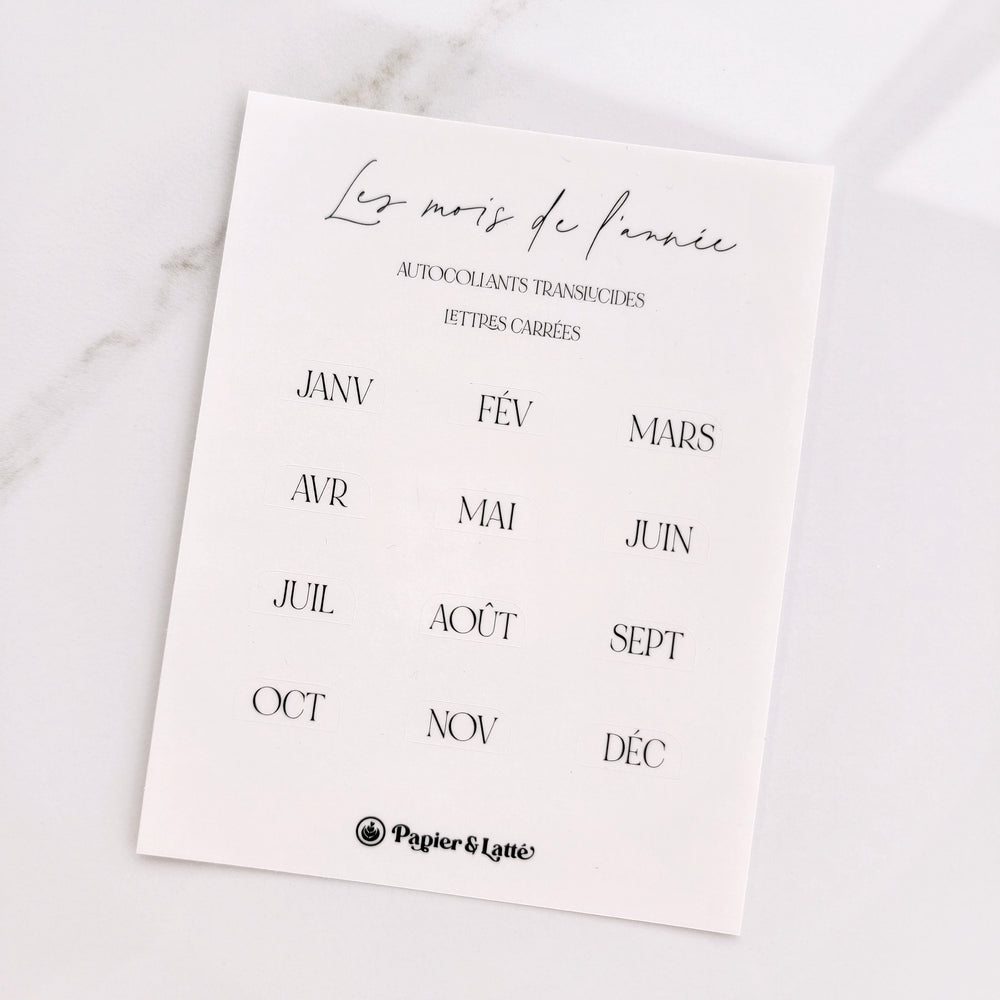 Les mois de l'année
AUTOCOLLANTS TRANSLUCIDES
LETTRES CARRÉES
JANV FÉV MARS
AVR MAI JUIN
JUIL AOÛT SEPT
OCT NOV DÉC
Papier & Latté